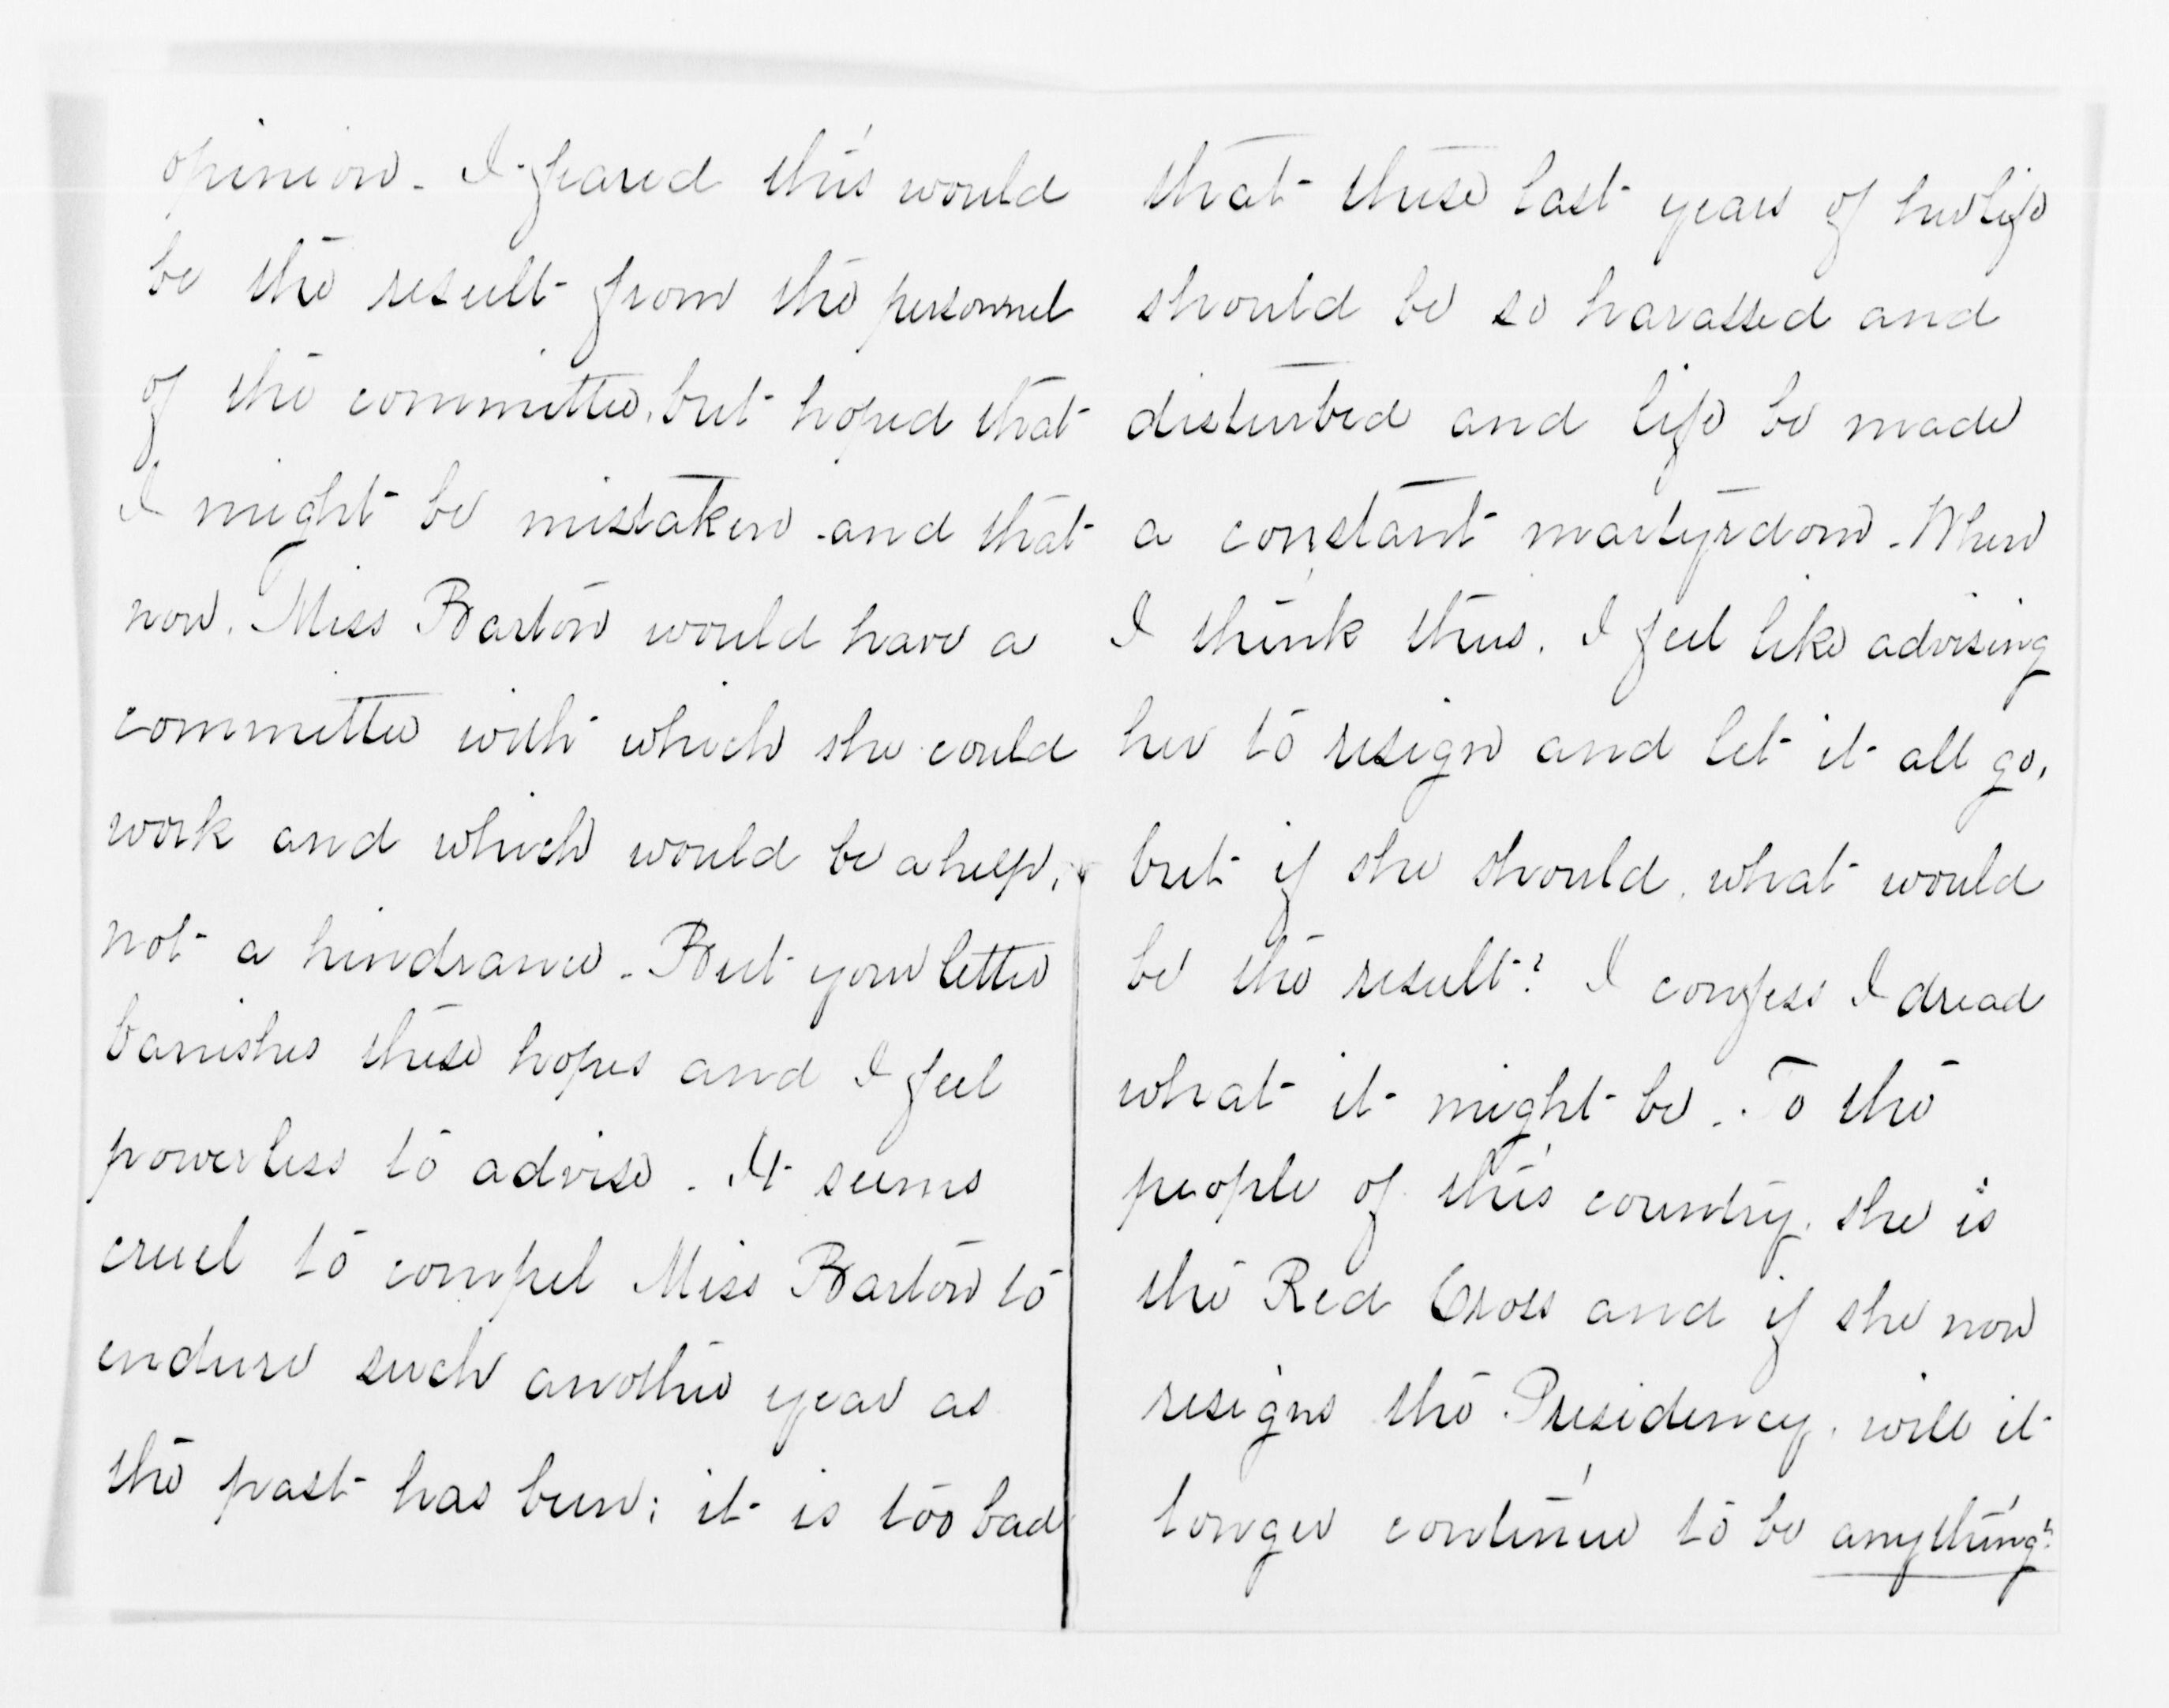 opinion. I feared this would
be the result from the personnel
of the committee, but hoped that
I might be mistaken and that
now, Miss Barton would have a
committee with which she could
work and which would be a help,
not a hindrance. But your letter
banishes these hopes and I feel
powerless to advise. It seems
cruel to compel Miss Barton to
endure such another year as
the past has been; it is too bad
that these last years of her life
should be so harassed and
disturbed and life be made
a constant martyrdom. When
I think thus, I feel like advising
her to resign and let it all go,
but if she should, what would
be the result? I confess I dread
what it might be. To the
people of this country, she is
the Red Cross and if she now
resigns the Presidency, will it
longer continue to be anything?